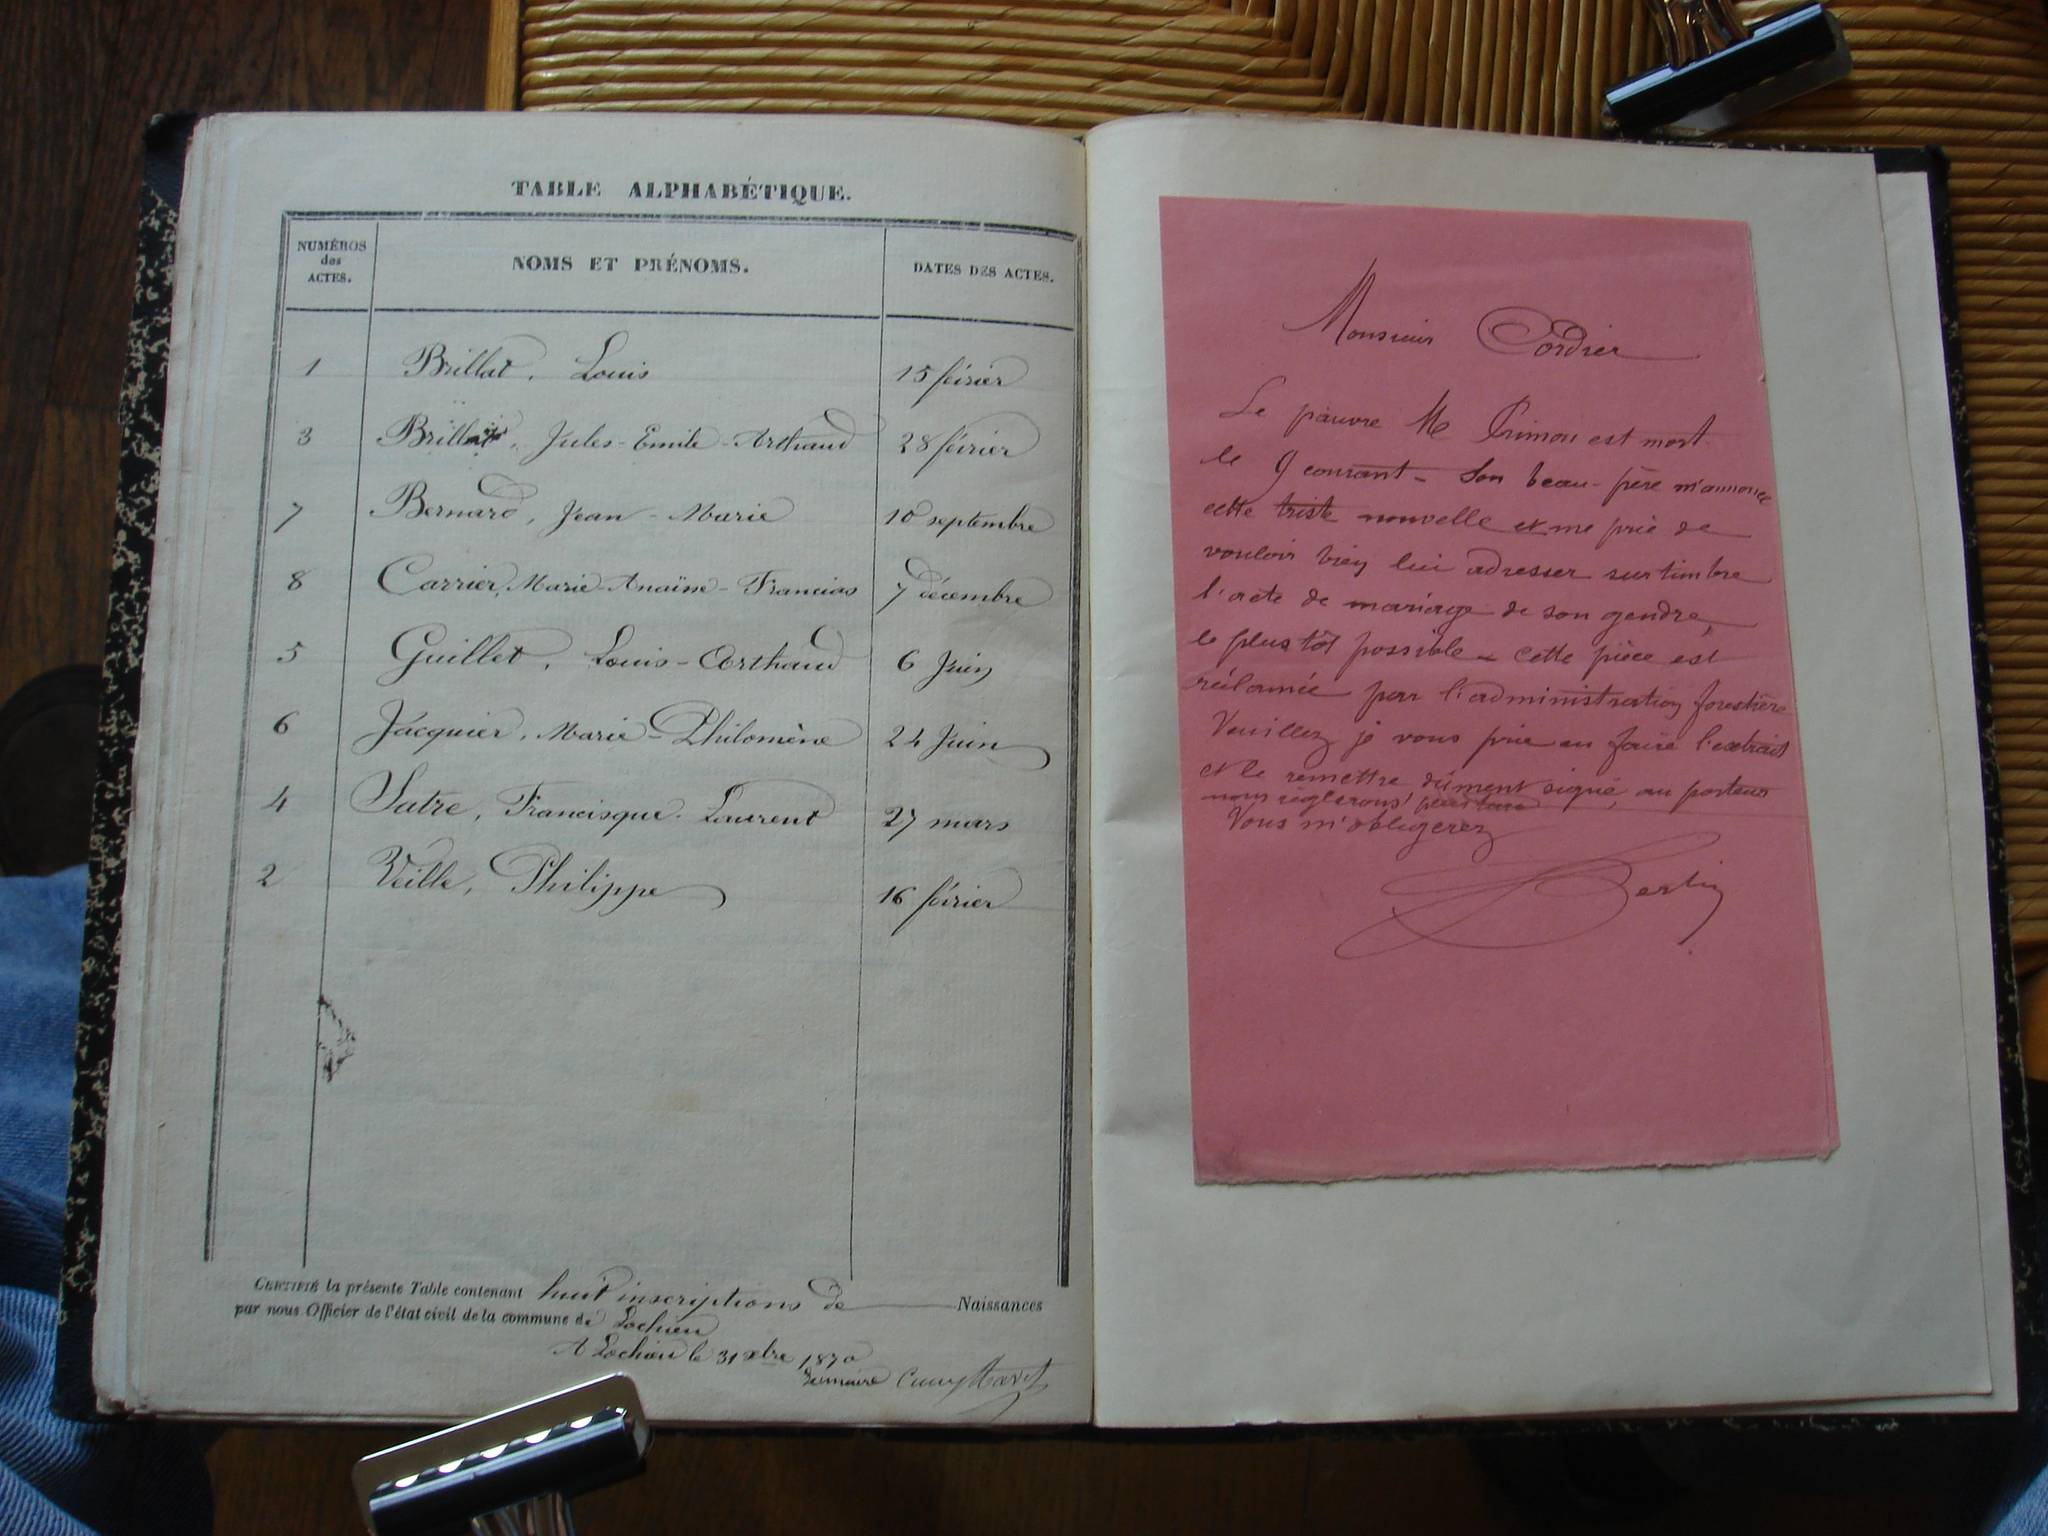 TABLE ALPHABÉTIQUE.
NUMÉROS des ACTES.
NOMS ET PRÉNOMS.
DATES DES ACTES.
1 Brillat, Louis 15 février
3 Brillat, Jules-Emile-Arthaud 28 février
7 Bernard, Jean-Marie 10 septembre
8 Carrier, Marie-Anaïse-Francias 7 décembre
5 Guillet, Louis-Arthaud 6 Juin
6 Jacquier, Marie-Philomène 24 Juin
4 Satre, Francisque-Laurent 27 mars
2 Veille, Philippe 16 février
CERTIFIÉ la présente Table contenant huit inscriptions de Naissances
par nous Officier de l'état civil de la commune de Lochieu
A Lochieu le 31 xbre 1870
Le maire
Monsieur Cordier
Le pauvre M Primon est mort
le 9 courant - Son beau-père m'annonce
cette triste nouvelle et me prie de
vouloir bien lui adresser sur timbre
l'acte de mariage de son gendre,
le plus tôt possible - cette pièce est
réclamée par l'administration forestière
Veuillez je vous prie en faire l'extrait
et le remettre dûment signé, au porteur
nous règlerons
Vous m'obligerez
Bertin